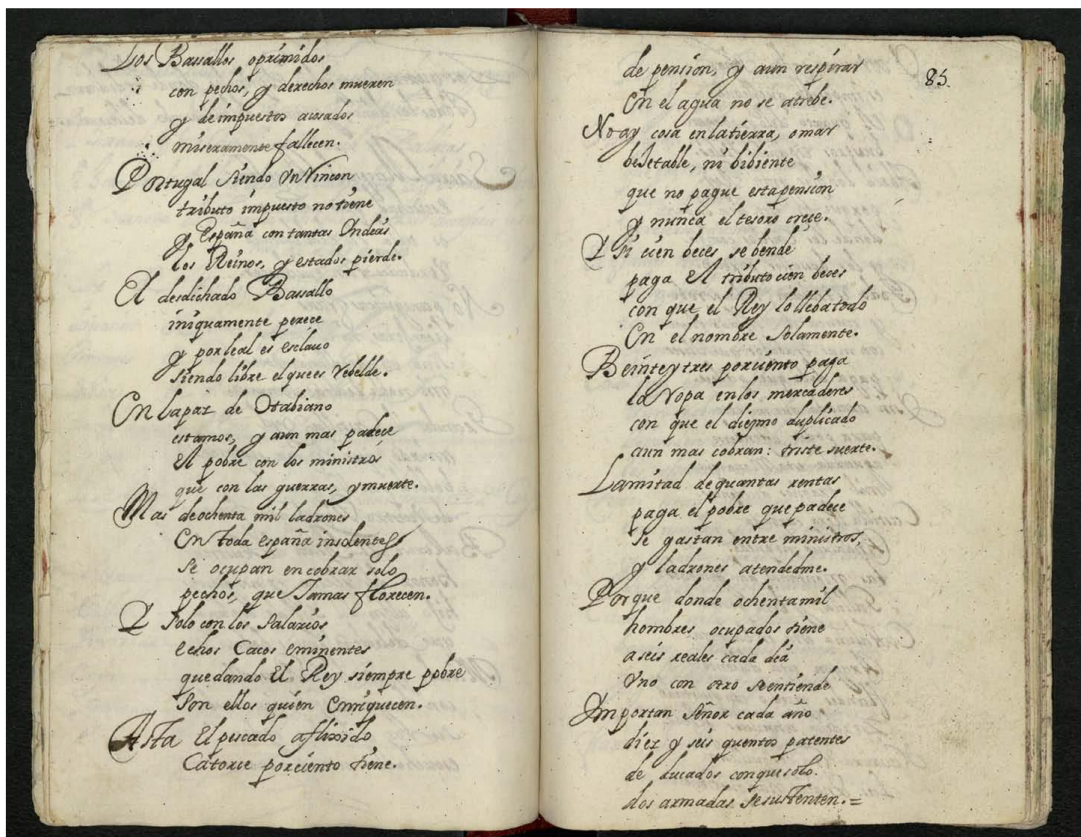 Los Bassallos oprimidos
con pechos, y derechos mueren
y de impuestos acosados
miseramente fallecen.
Portugal siendo Vn Rincon
tributo impuesto no tiene
y España con tantas Yndias
los Reinos, y estados pierde.
El desdichado Bassallo
iniquamente perece
y por leal es esclauo
siendo libre el que es rebelde.
En la paz de Otabiano
estamos, y aun mas padece
El pobre con los ministros
que con las guerras, y muerte.
Mas de ochenta mil ladrones
En toda españa insolentes
se ocupan en cobrar solo
pechos, que Jamas florecen.
Y solo con los salarios
echos Cacos eminentes
quedando El Rey siempre pobre
son ellos quien Enriquecen.
Asta El pescado aflixido
Catorce por ciento tiene.
83.
de pension, y aun respirar
En el agua no se atrebe.
No ay cosa en la tierra, o mar
bejetable, ni bibiente
que no pague esta pension
y nunca el tesoro crece.
Y si cien beces se bende
paga El tributo cien beces
con que el Rey lo lleba todo
En el nombre solamente.
Beinte y tres por ciento paga
la Ropa en los mercaderes
con que el diezmo duplicado
aun mas cobran: triste suerte.
La mitad de quantas rentas
paga el pobre que padece
se gastan entre ministros,
y ladrones atendedme.
Porque donde ochenta mil
hombres ocupados tiene
a seis reales cada dia
Vno con otro se entiende
Ymportan señor cada año
diez y seis quentos patentes
de ducados con que solo.
dos armadas se susTenten.=